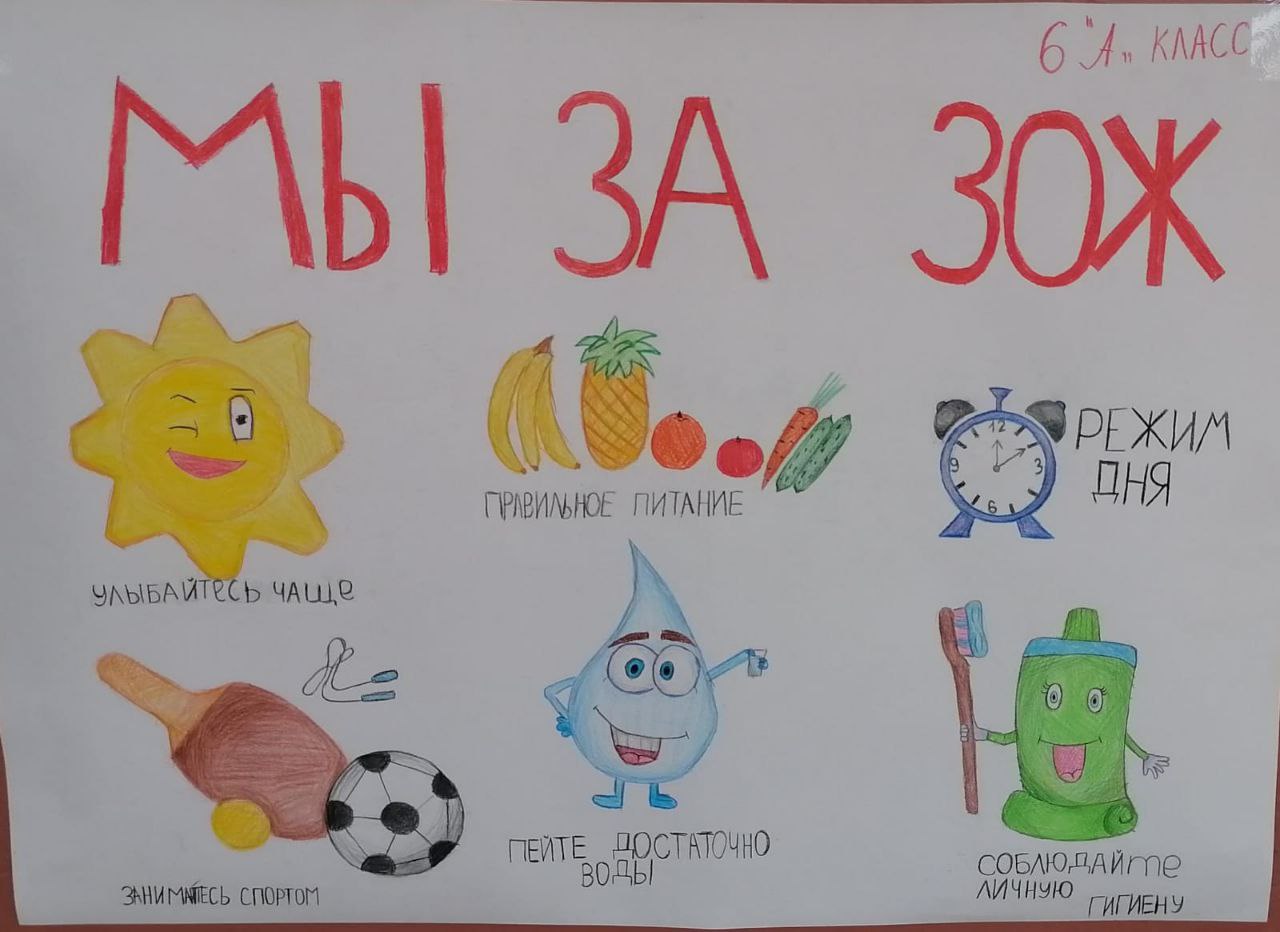 6 "А„ КЛАСС
МЫ ЗА ЗОЖ
УЛЫБАЙТЕСЬ ЧАЩЕ
ПРАВИЛЬНОЕ ПИТАНИЕ
12
9 3
6
РЕЖИМ
ДНЯ
ЗАНИМАЙТЕСЬ СПОРТОМ
ПЕЙТЕ ДОСТАТОЧНО
ВОДЫ
СОБЛЮДАЙТЕ
ЛИЧНУЮ
ГИГИЕНУ